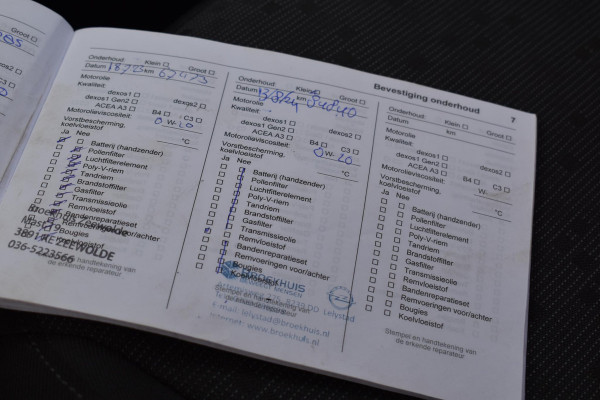 Bevestiging onderhoud
?
Onderhoud: Klein Groot
Datum km
Motorolie
Kwaliteit:
dexos1 dexos2
dexos1 Gen2
ACEA A3 B4 C3
Motorolieviscositeit: 0 W- 20
Vorstbescherming, koelvloeistof °C
Ja Nee
Batterij (handzender)
Pollenfilter
Luchtfilterelement
Poly-V-riem
Tandriem
Brandstoffilter
Gasfilter
Transmissieolie
Remvloeistof
Bandenreparatieset
Remvoeringen voor/achter
3891 KE ZEEWOLDE
036-5223566
de erkende reparateur
Onderhoud: Klein Groot
Datum km 84840
Motorolie
Kwaliteit:
dexos1 dexos2
dexos1 Gen2
ACEA A3 B4 C3
Motorolieviscositeit: 0 W- 20
Vorstbescherming, koelvloeistof °C
Ja Nee
Batterij (handzender)
Pollenfilter
Luchtfilterelement
Poly-V-riem
Tandriem
Brandstoffilter
Gasfilter
Transmissieolie
Remvloeistof
Bandenreparatieset
Remvoeringen voor/achter
Bougies
Koelvloeistof
BROEKHUIS
Lelystad
Stempel en handtekening van
E-mail: lelystad@broekhuis.nl
Internet: www.broekhuis.nl
Onderhoud: Klein Groot
Datum km
Motorolie
Kwaliteit:
dexos1 dexos2
dexos1 Gen2
ACEA A3 B4 C3
Motorolieviscositeit: W-
Vorstbescherming, koelvloeistof °C
Ja Nee
Batterij (handzender)
Pollenfilter
Luchtfilterelement
Poly-V-riem
Tandriem
Brandstoffilter
Gasfilter
Transmissieolie
Remvloeistof
Bandenreparatieset
Remvoeringen voor/achter
Bougies
Koelvloeistof
Stempel en handtekening van
de erkende reparateur